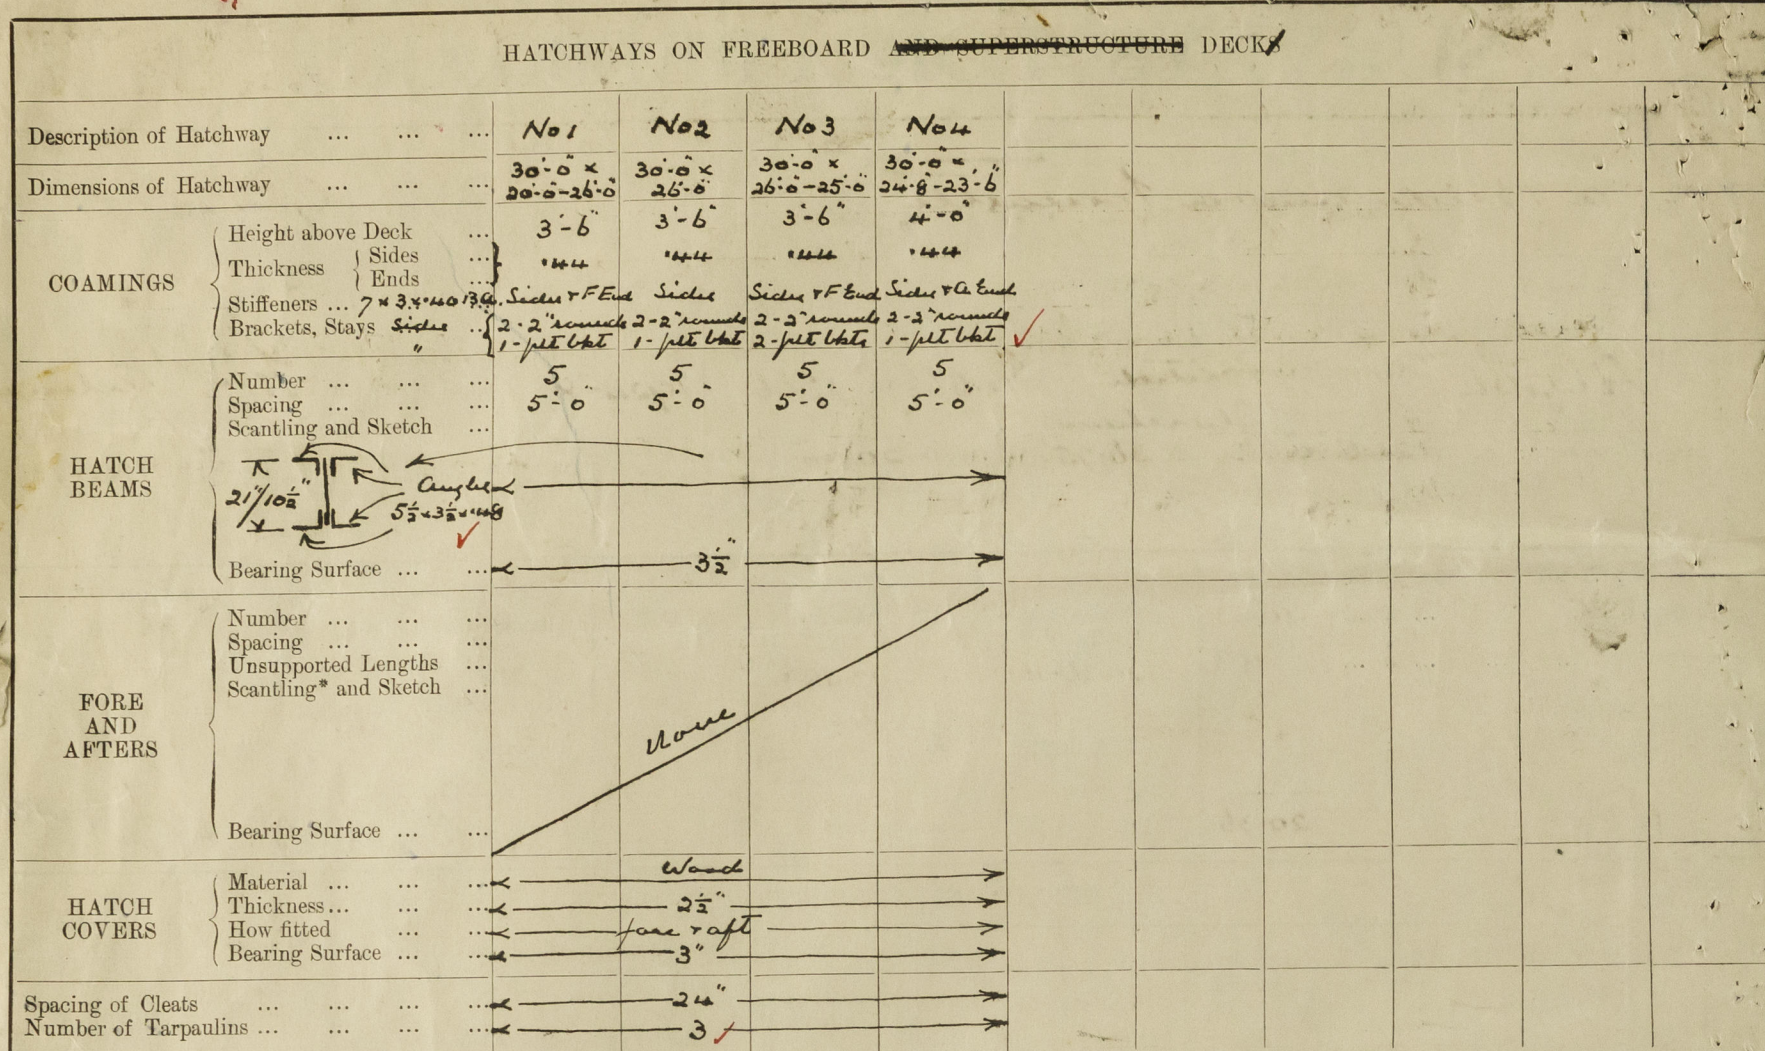 HATCHWAYS ON FREEBOARD AND SUPERSTRUCTURE DECKS
Description of Hatchway ... ... ... No 1 No 2 No 3 No 4
30'-0" x 30'-0" x 30'-0" x 30'-0" x
Dimensions of Hatchway ... ... ... 20'-0-26'-0 26'-0" 26'-0-25'-0" 24'-8-23'-6"
COAMINGS
Height above Deck ... 3'-6" 3'-6" 3'-6" 4'-0"
Thickness
Sides ...
Ends ...
.44 .44 .44 .44
Stiffeners ... 7 x 3 x .40 BA. Sides + F End Sides Sides + F End Sides + A End
Brackets, Stays Sides ... 2-2" rounds 2-2" rounds 2-2" rounds 2-2" rounds
" 1-plt bkt 1-plt bkt 2-plt bkts 1-plt bkt
HATCH BEAMS
Number ... ... ... 5 5 5 5
Spacing ... ... ... 5'-0" 5'-0" 5'-0" 5'-0"
Scantling and Sketch ...
21"/10½" Angles
5½ x 3½ x .48
Bearing Surface ... ... 3½"
FORE AND AFTERS
Number ... ... ...
Spacing ... ... ...
Unsupported Lengths ...
Scantling* and Sketch ...
None
Bearing Surface ... ...
HATCH COVERS
Material ... ... ... Wood
Thickness ... ... ... 2½"
How fitted ... ... fore & aft
Bearing Surface ... ... 3"
Spacing of Cleats ... ... ... ... 24"
Number of Tarpaulins ... ... ... ... 3